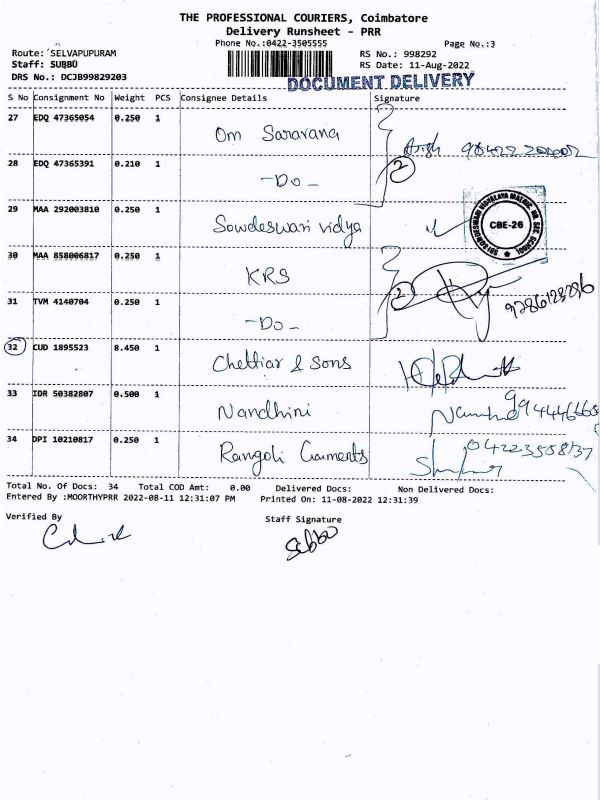 THE PROFESSIONAL COURIERS, Coimbatore
Delivery Runsheet - PRR
Phone No.:0422-3505555
Page No.:3
Route: SELVAPUPURAM
RS No.: 998292
Staff: SUBBU
RS Date: 11-Aug-2022
DRS No.: DCJB99829203
DOCUMENT DELIVERY
S No Consignment No Weight PCS Consignee Details Signature
27 EDQ 47365054 0.250 1 Om Saravana
28 EDQ 47365391 0.210 1 -Do- 2
29 MAA 292003810 0.250 1 Sowdeswari vidya
CBE-26
30 MAA 858006817 0.250 1 KRS
31 TVM 4140704 0.250 1 -Do- 2 9786123296
32 CUD 1895523 8.450 1 Chettiar & Sons
33 IDR 50382807 0.500 1 Nandhini
34 DPI 10210817 0.250 1 Rangoli Garments
Total No. Of Docs: 34 Total COD Amt: 0.00 Delivered Docs: Non Delivered Docs:
Entered By :MOORTHYPRR 2022-08-11 12:31:07 PM Printed On: 11-08-2022 12:31:39
Verified By
Staff Signature